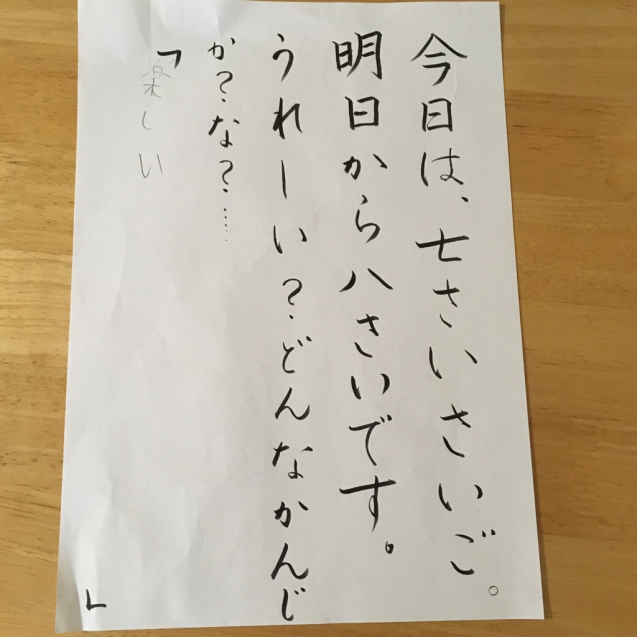 今日は、七さいさいご。
明日から八さいです。
うれーい?どんなかんじ
か?な?……
「楽しい　」